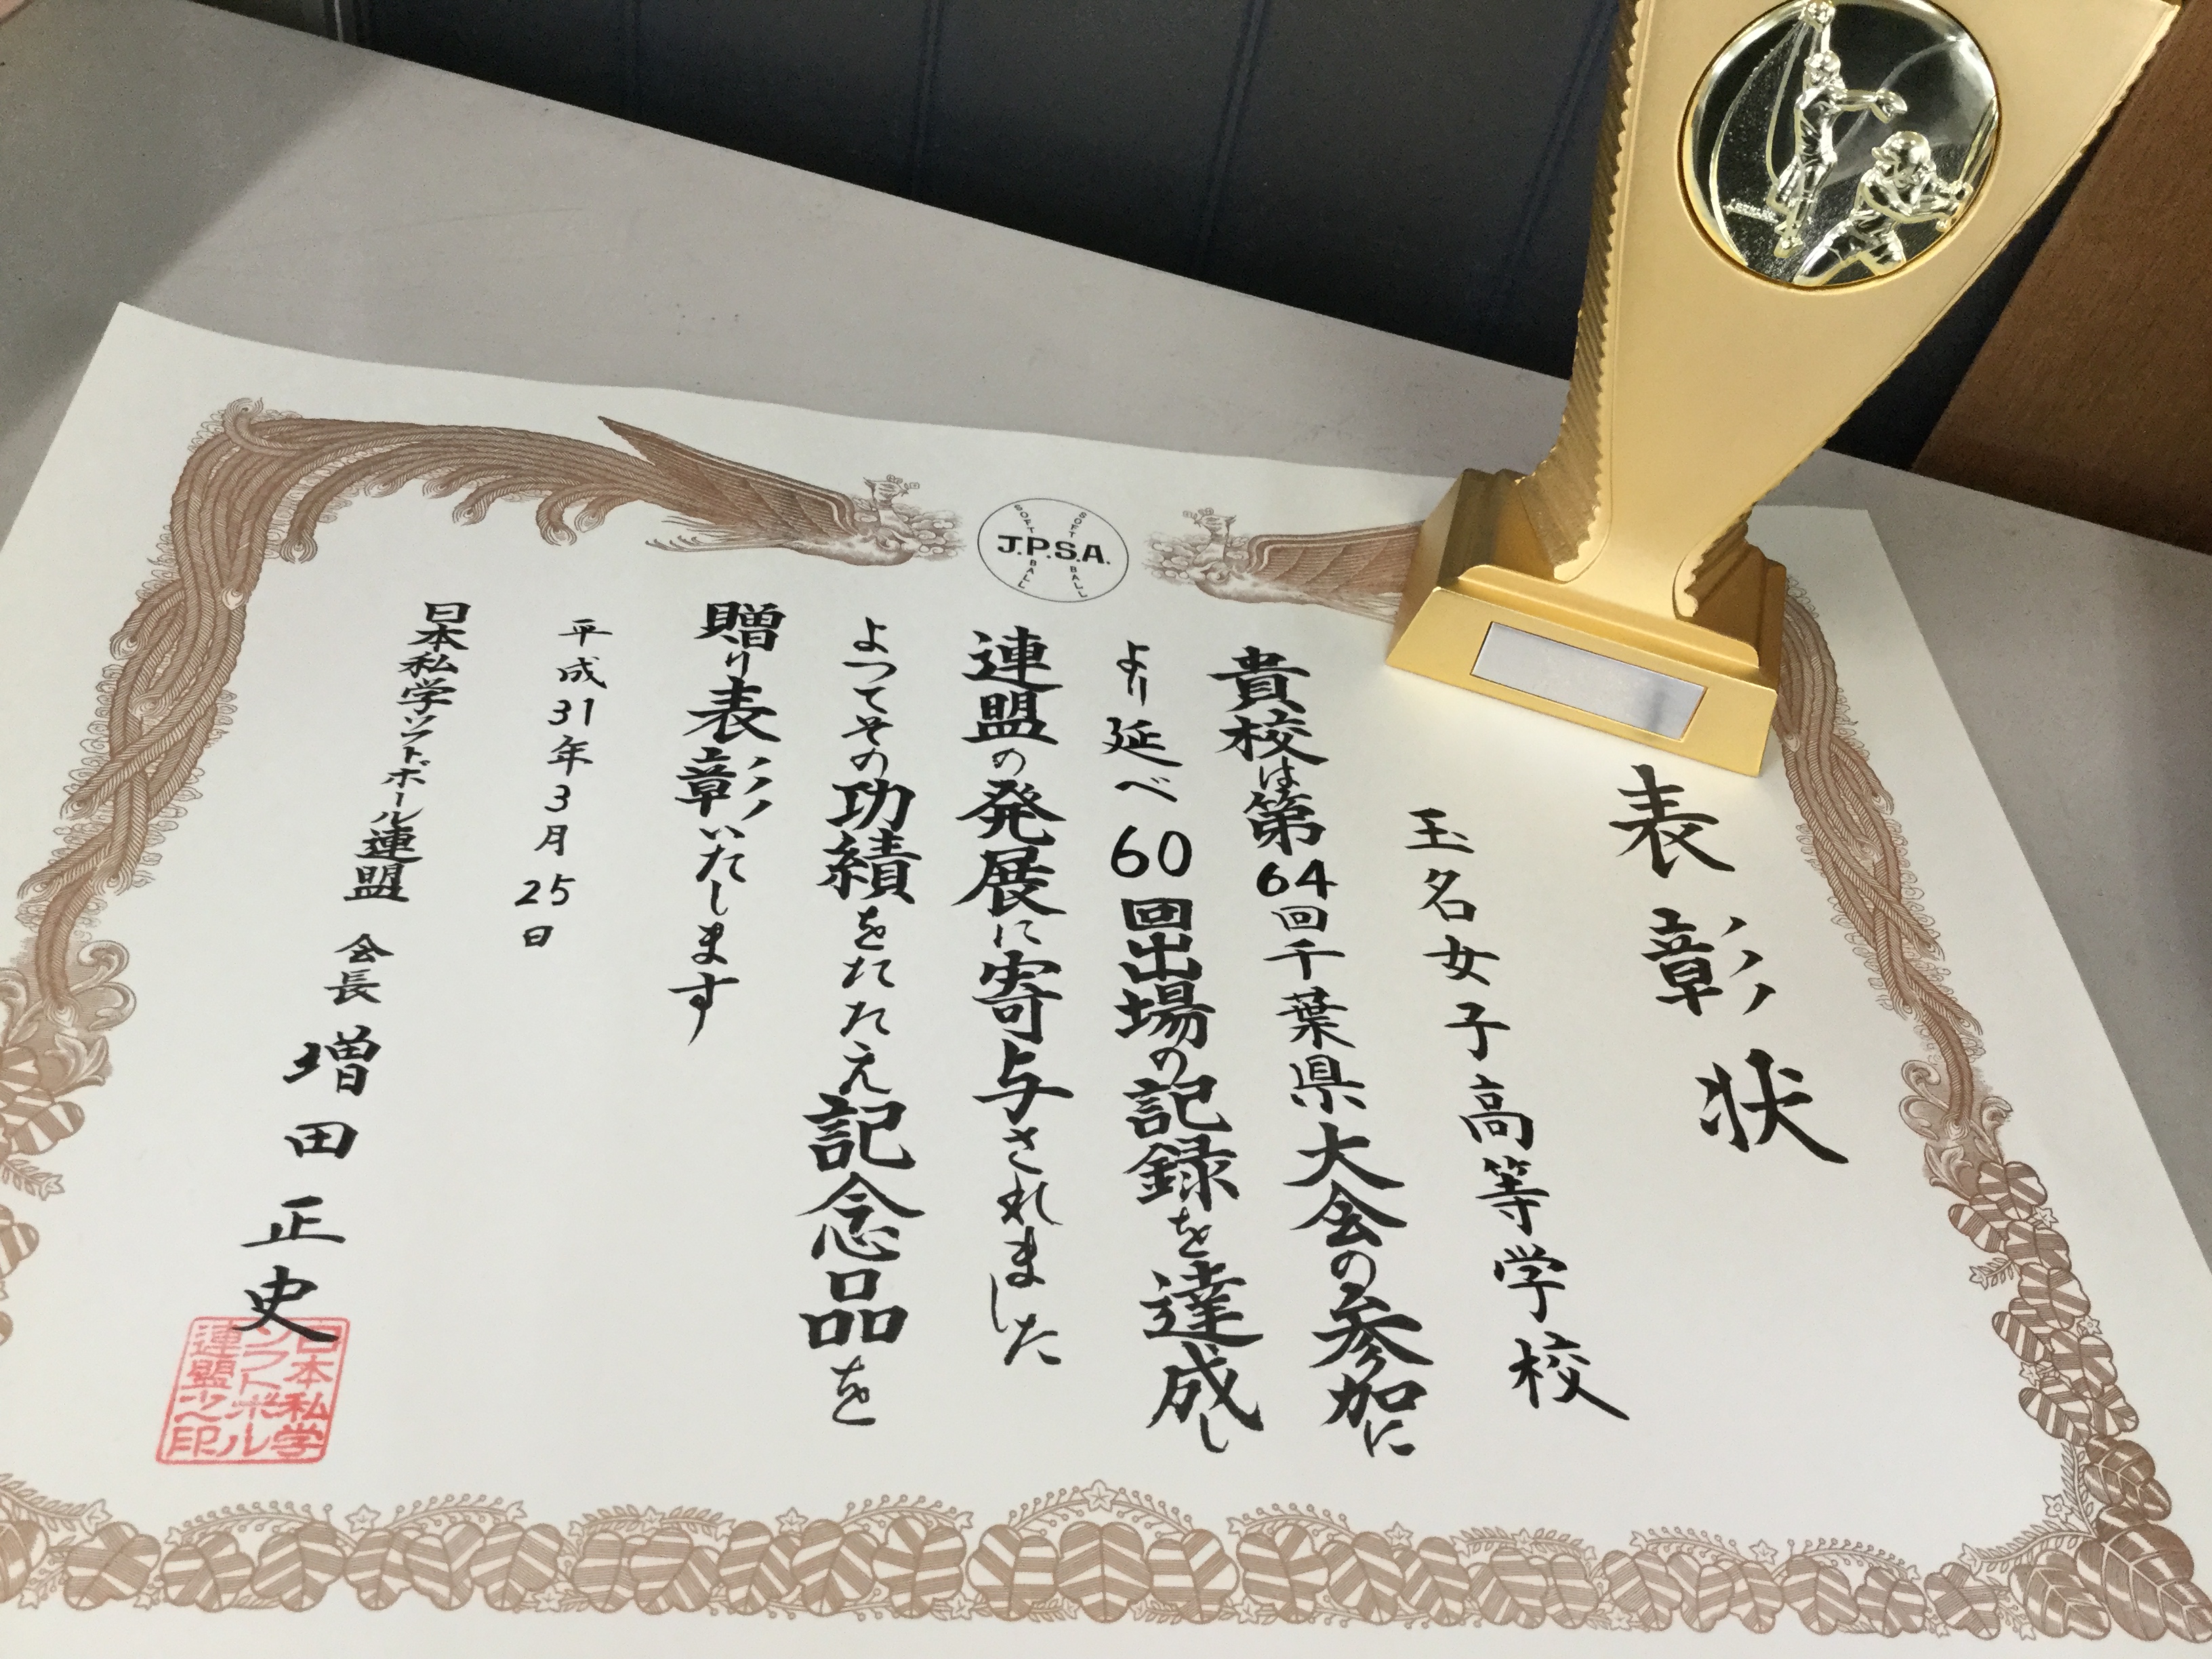 表彰状
玉名女子高等学校
貴校は第64回千葉県大会の参加に
より延べ60回出場の記録を達成し
連盟の発展に寄与されました
よつてその功績をたたえ記念品を
贈り表彰いたします
平成31年3月25日
日本私学ソフトボール連盟 会長 増田正史
日本私学
ソフトボル
連盟之印
J.P.S.A.
SOFT BALL
SOFT BALL